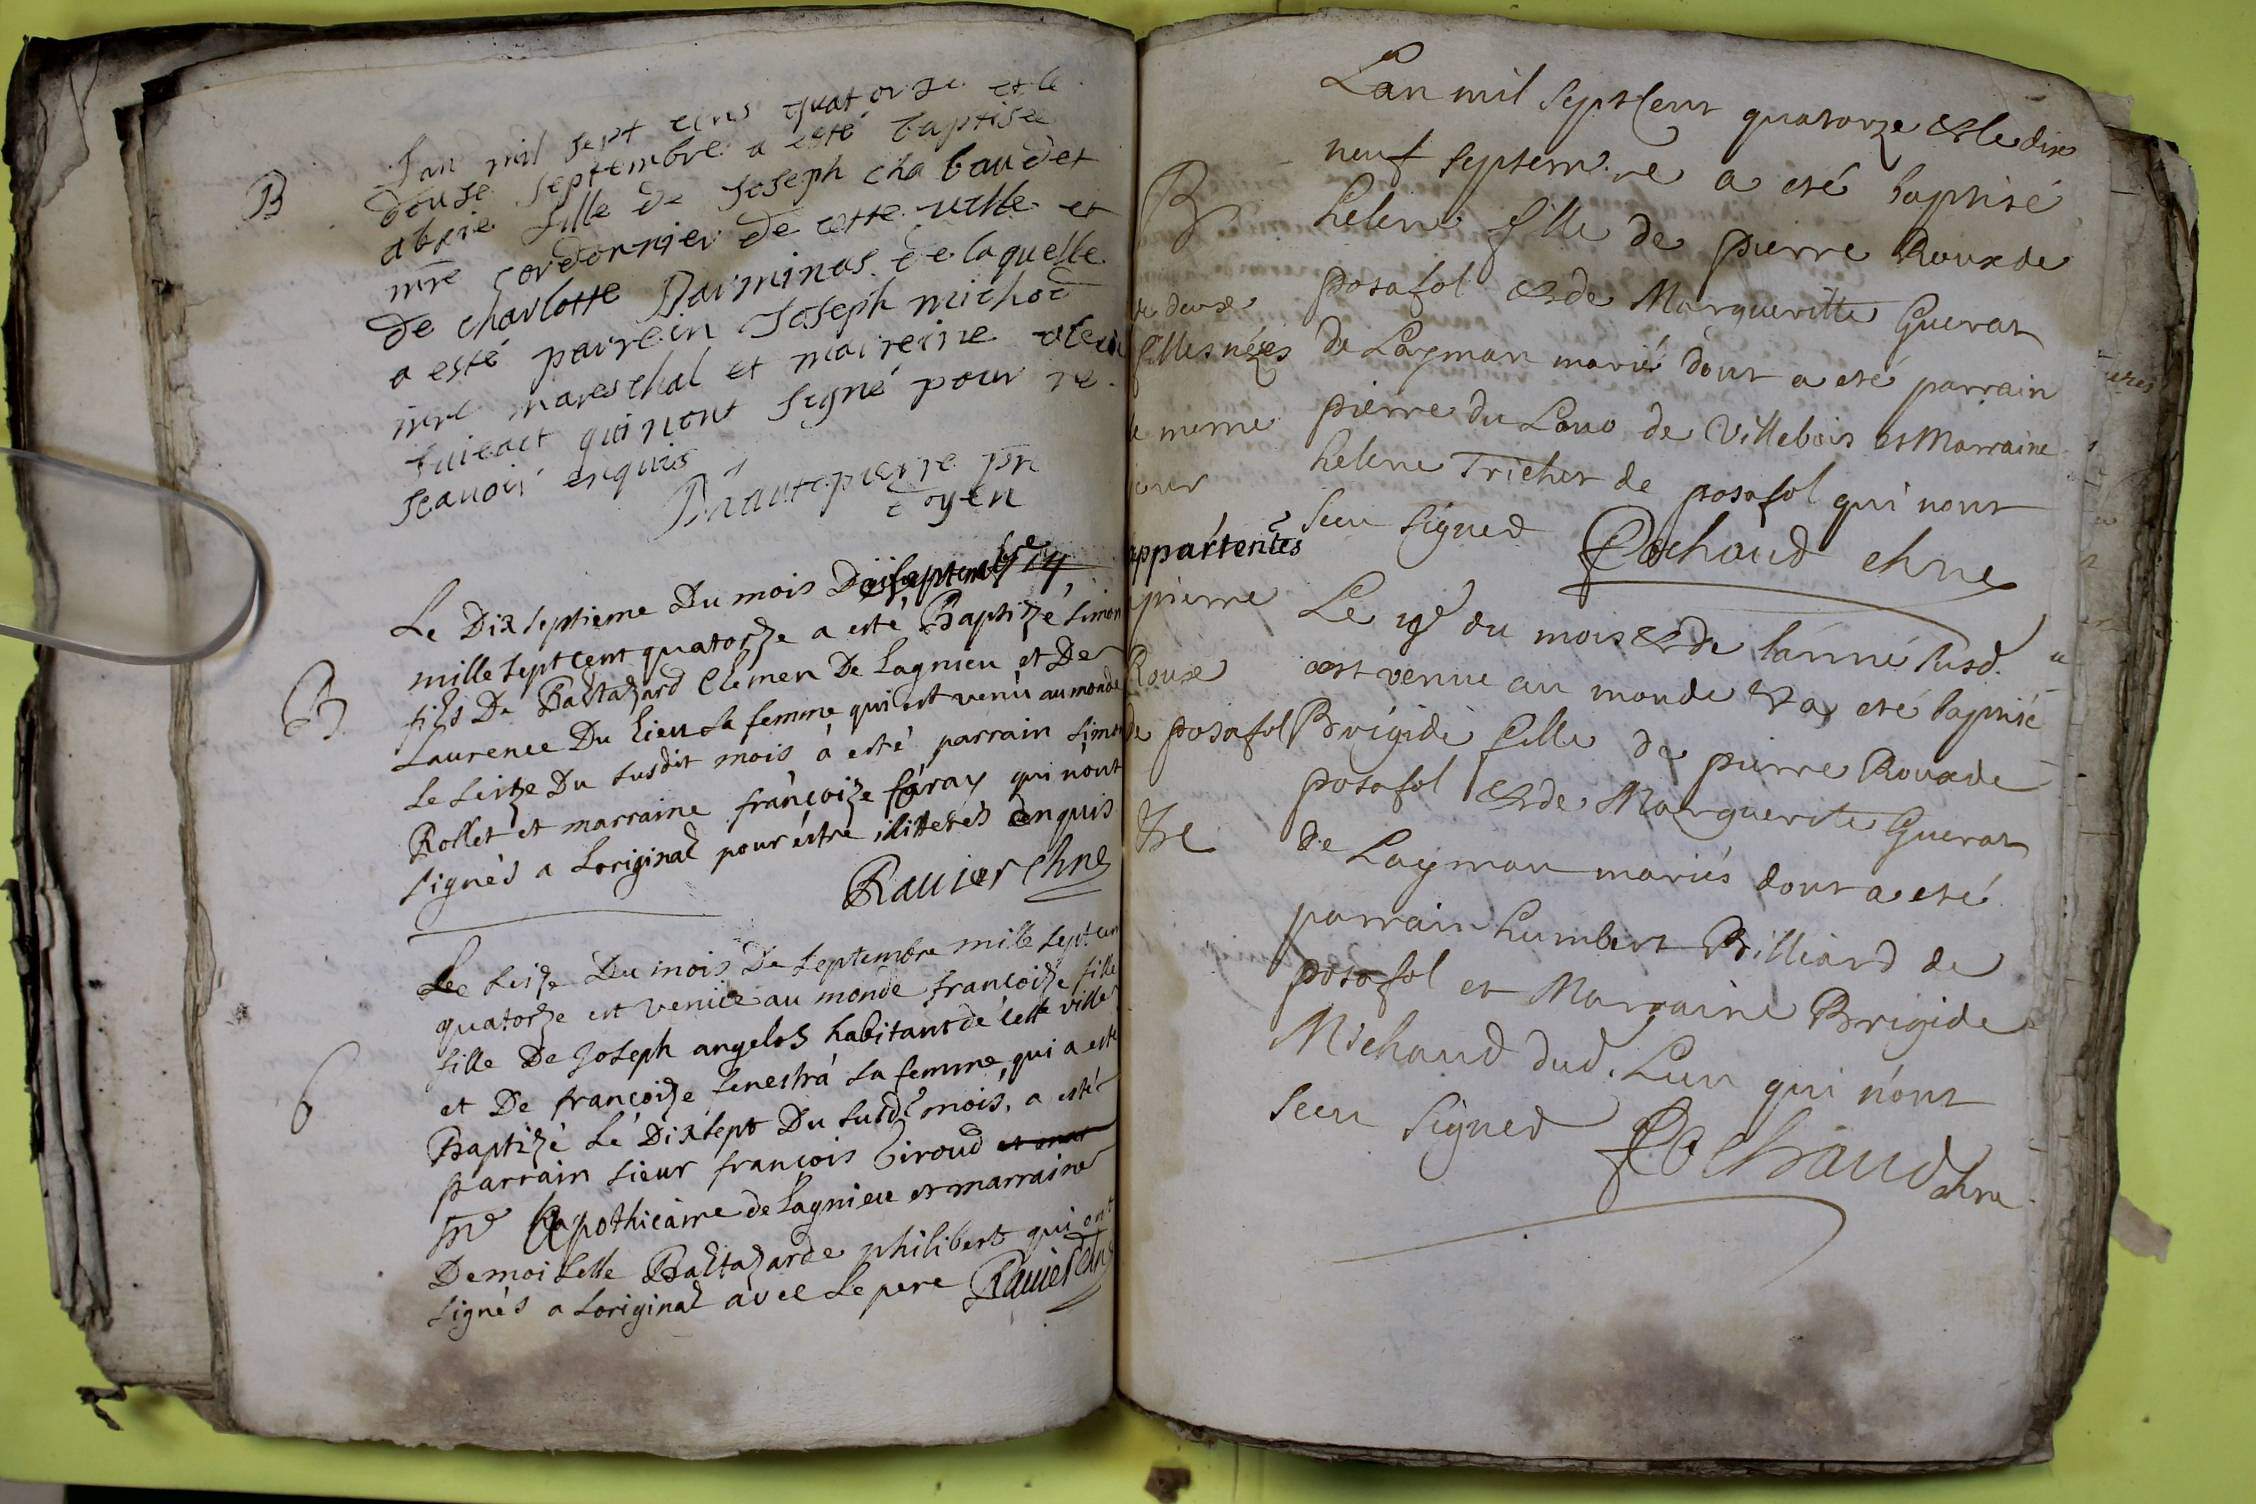 B
Lan mil sept cens quatorse et le
douse septembre a esté baptisée
fille de Joseph chabaudet
mre cordonnier de cette ville et
de charlotte Darminas de laquelle
a esté parrein Joseph michod
mre mareschal et maireine
qui nont signé pour ne
scauoir enquis
Dhautepierre pr
doyen
B
Le Dix septieme Du mois De septembre
mille sept cent quatorze a esté Baptizé simon
fils De Baltazard Clemen De Lagnieu et De
Laurence Du lieu sa femme qui est venu au monde
Le seitze Du susdit mois a esté parrain simon
Rollet et marraine françoize faray qui nont
signés a Loriginal pour estre illiterés enquis
Rauier chne
6
Le seize Du mois De septembre mille sept cent
quatorze est venüe au monde françoize fille
fille De Joseph angelos habitant de cette ville
et De françoize fenestra sa femme, qui a esté
Baptizé Le Dixsept Du susd mois, a esté
parrain sieur françois Giroud et mar
mre Apothicaire de Lagnieu et marraine
Demoiselle Baltazarde philibert qui ont
signés a Loriginal avec Le pere Rauier chne
B
de deux
filles nées
le meme
jour
appartentes
a pierre
Roux
de posafol
Lan mil sept cent quatorze et le dix
neuf septembre a eté baptisé
helene fille de pierre Roux de
posafol et de Margueritte Guerat
de Laymon mariés dont a eté parrain
pierre du Lauo de Villebois et Marraine
helene Trichet de posafol qui nont
sceu signer Cochaud chne
Le 19e du mois et de l'année susd.
est venue au monde et a eté baptisé
Brigide fille de pierre Roux de
posafol et de Marguerite Guerat
de Laymon mariés dont a eté
parrain humbert Billiard de
posafol et Marraine Brigide
Michaud dud. Lieu qui n'ont
sceu signer Cochaud chne